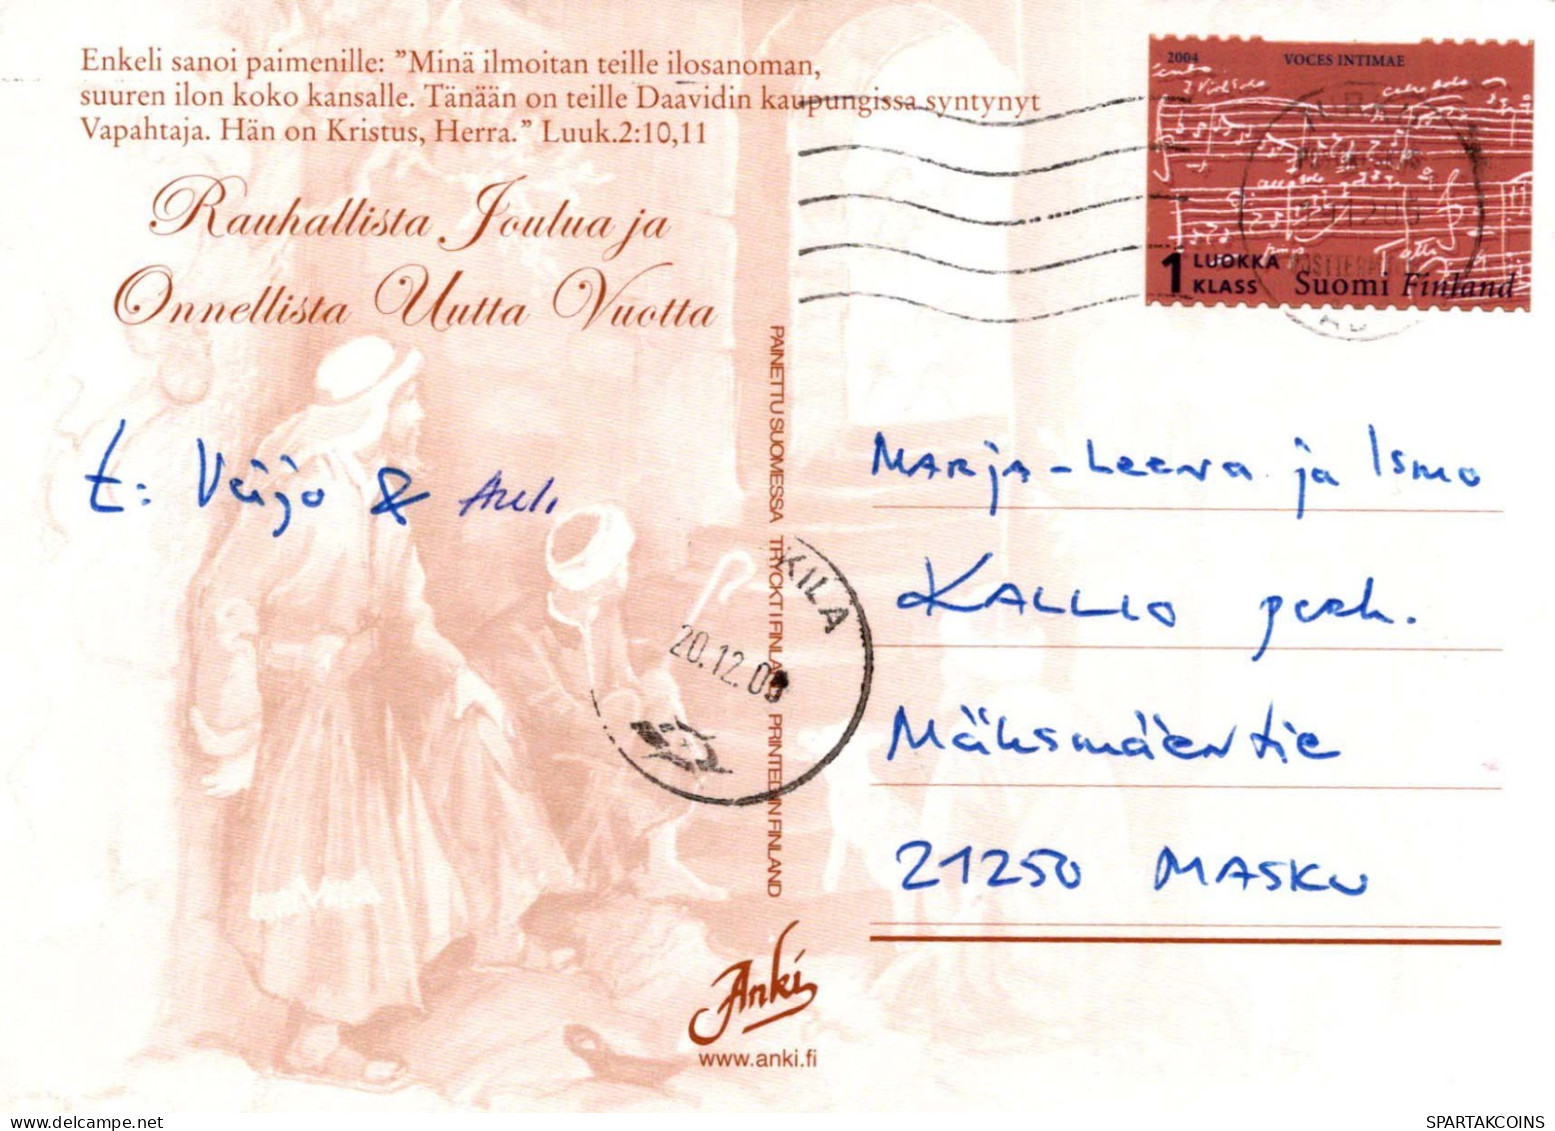 Enkeli sanoi paimenille: ”Minä ilmoitan teille ilosanoman,
suuren ilon koko kansalle. Tänään on teille Daavidin kaupungissa syntynyt
Vapahtaja. Hän on Kristus, Herra.” Luuk.2:10,11
Rauhallista Joulua ja
Onnellista Uutta Vuotta
t: Veijo & Auli
2004 VOCES INTIMAE
1 LUOKKA
KLASS
Suomi Finland
PAINETTU SUOMESSA TRYCKT I FINLAND PRINTED IN FINLAND
KILA
20.12.05
Marja-Leena ja Ismo
KALLIO perh.
Mäksmäentie
21250 MASKU
Anki
www.anki.fi
SPARTAKCOINS